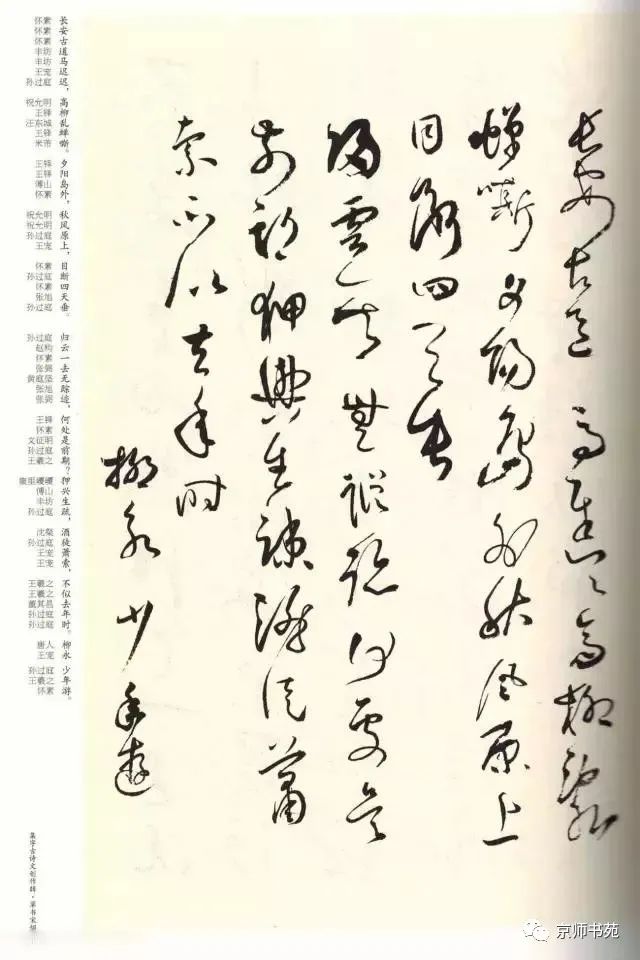 長安古道馬遲遲高柳亂
蟬嘶夕陽島外秋風原上
目斷四天垂
歸雲一去無蹤跡何處是
前期狎興生疎酒徒蕭
索不似去年时
柳永少年遊
长安古道马迟迟，
高柳乱蝉嘶。
夕阳岛外，
秋风原上，
目断四天垂。
归云一去无踪迹，
何处是前期？
狎兴生疏，
酒徒萧索，
不似去年时。
柳永
少年游。
怀素 怀素 怀素 丰坊 丰坊 王宠 孙过庭
祝允明 王铎 汪东城 王铎 米芾
王铎 王铎 傅山 怀素
祝允明 祝允明 孙过庭 王宠
怀素 孙过庭 怀素 张旭 孙过庭
孙过庭 赵构 怀素 张弼 黄庭坚 张旭 张弼
王铎 怀素 文征明 孙过庭 王羲之
康里巎巎 傅山 丰坊 孙过庭
沈粲 孙过庭 王宠 王宠
王羲之 王羲之 董其昌 孙过庭 孙过庭
唐人 王宠
孙过庭 王羲之 怀素
集字古诗文创作辑·草书宋词
京师书苑